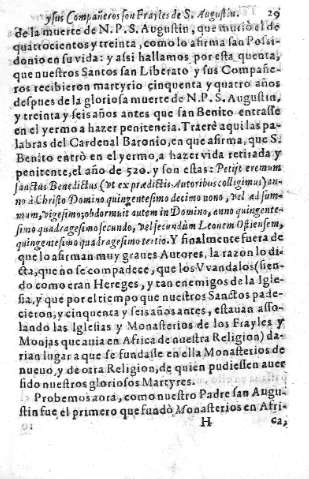 y sus Compañeros son Frayles de S. Augustin. 29
de la muerte de N. P. S. Augustin, que murió el de
quatrocientos y treinta, como lo afirma san Possi-
donio en su vida: y assi hallamos por esta quenta,
que nuestros Santos san Liberato y sus Compañe-
ros recibieron martyrio cinquenta y quatro años
despues de la gloriosa muerte de N. P. S. Augustin,
y treinta y seis años antes que san Benito entrasse
en el yermo a hazer penitencia. Traerè aqui las pa-
labras del Cardenal Baronio, en que afirma, que S.
Benito entrò en el yermo, a hazer vida retirada y
penitente, el año de 520. y son estas: Petijt eremum
sanctus Benedictus (vt ex prædictis Autoribus colligimus) an-
no à Christo Domino quingentesimo decimo nono, vel ad sum-
mam, vigesimo; obdormuit autem in Domino, anno quingente-
simo quadragesimo secundo, vel secundùm Leonem Ostiensem,
quingentesimo quadragesimo tertio. Y finalmente fuera de
que lo afirman muy graues Autores, la razon lo di-
cta, que no se compadece, que los Vvandalos (sien-
do como eran Hereges, y tan enemigos de la Igle-
sia, y que por el tiempo que nuestros Sanctos pade-
cieron, y cinquenta y seis años antes, estauan asso-
lando las Iglesias y Monasterios de los Frayles y
Monjas que auia en Africa de nuestra Religion) da-
rian lugar a que se fundasse en ella Monasterios de
nueuo, y de otra Religion, de quien pudiessen auer
sido nuestros gloriosos Martyres.
Probemos aora, como nuestro Padre san Augu-
stin fue el primero que fundò Monasterios en Afri-
H ca,